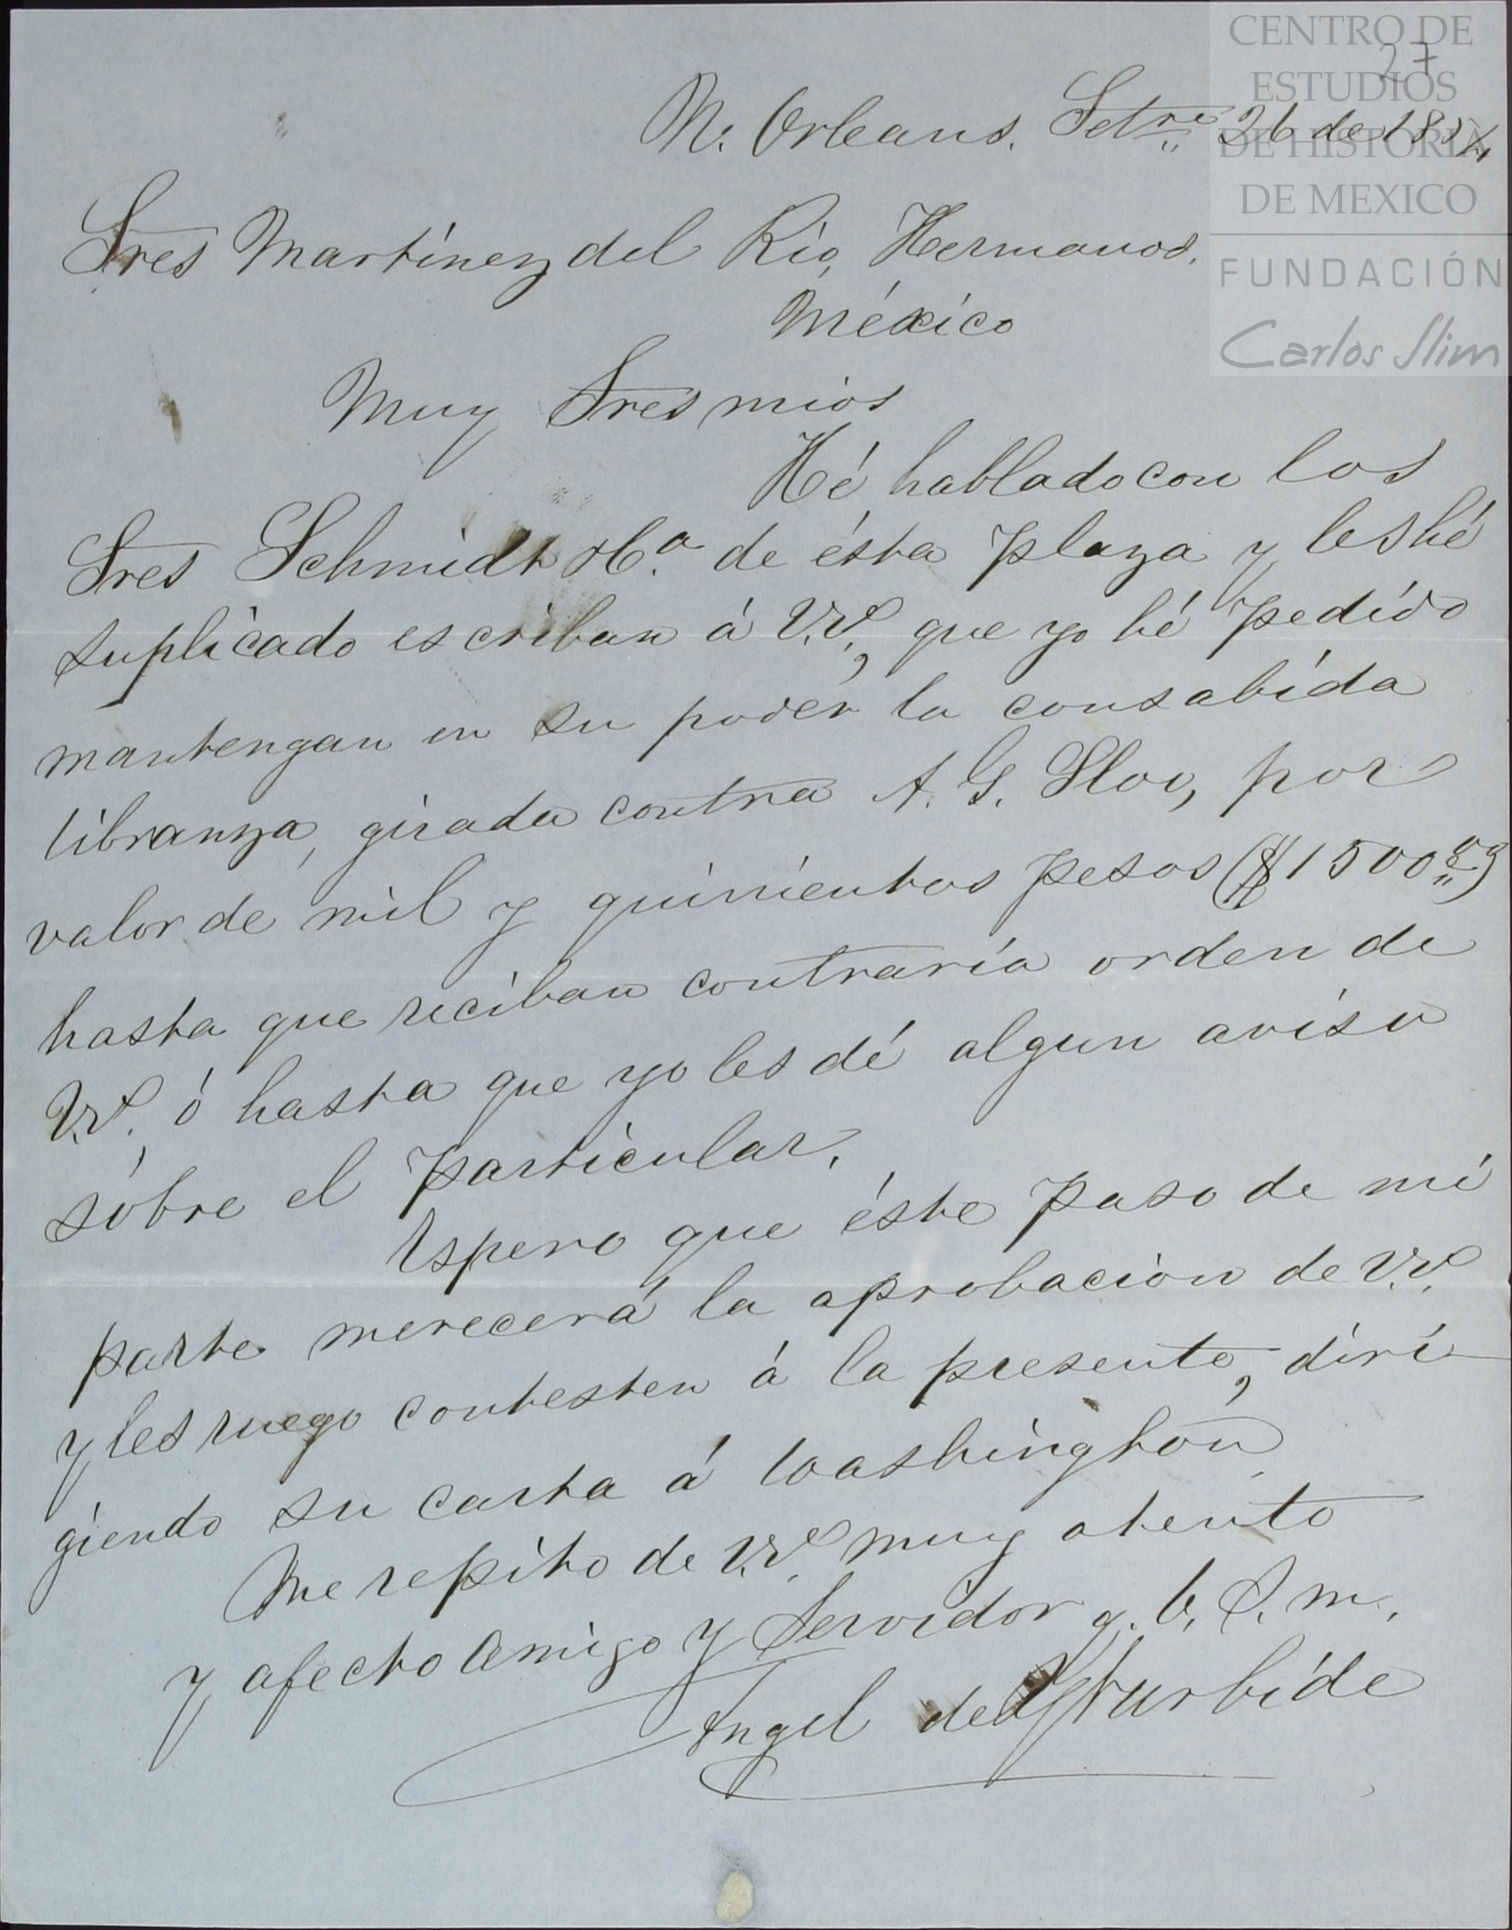 CENTRO DE
ESTUDIOS
DE HISTORIA
DE MEXICO
FUNDACIÓN
Carlos Slim
27
N. Orleans. Setre 26 de 1854
Sres Martínez del Rio, Hermanos.
México
Muy Sres mios
Hé hablado con los
Sres Schmidt & Ca. de ésta plaza y les hé
suplicado escriban á V.V., que yo hé pedido
mantengan en su poder la consabida
libranza, girada contra A. G. Sloo, por
valor de mil y quinientos pesos ($1500)
hasta que reciban contraría orden de
V.V., ó hasta que yo les dé algun aviso
sóbre el particular.
Espero que éste paso de mi
parte merecerá la aprobacion de V.V.
y les ruego contesten á la presente, diri-
giendo su carta á Washington.
Me repito de V.V. muy atento
y afecto amigo y Servidor q. b. S. m.
Angel de Yturbide